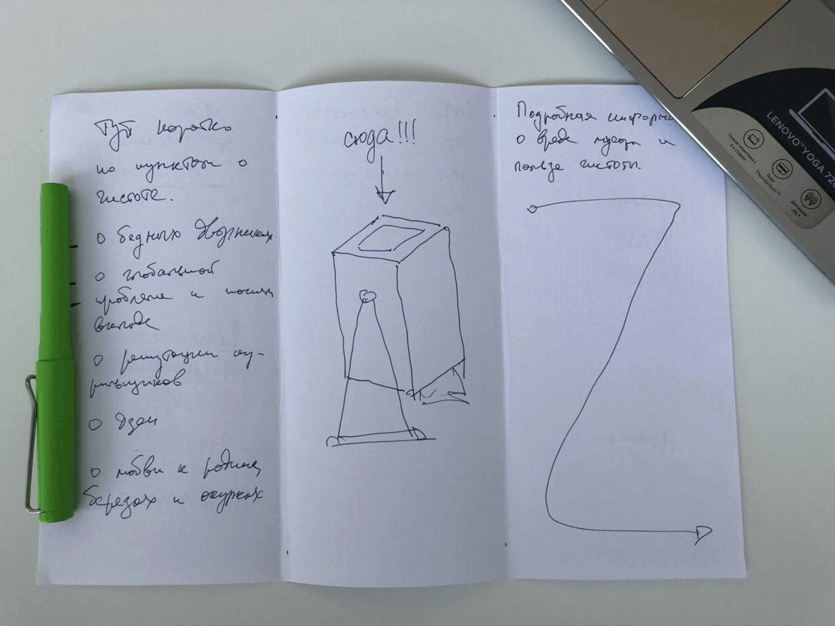 Тут коротко
по пунктам о
чистоте.
о бедных дворниках
о глобальной
проблеме и нашем
вкладе
о репутации ку-
рильщиков
о дзен
о любви к родине,
берёзах и окурках
сюда!!!
Подробная информ
о вреде мусора и
пользе чистоты.
LENOVO YOGA 720